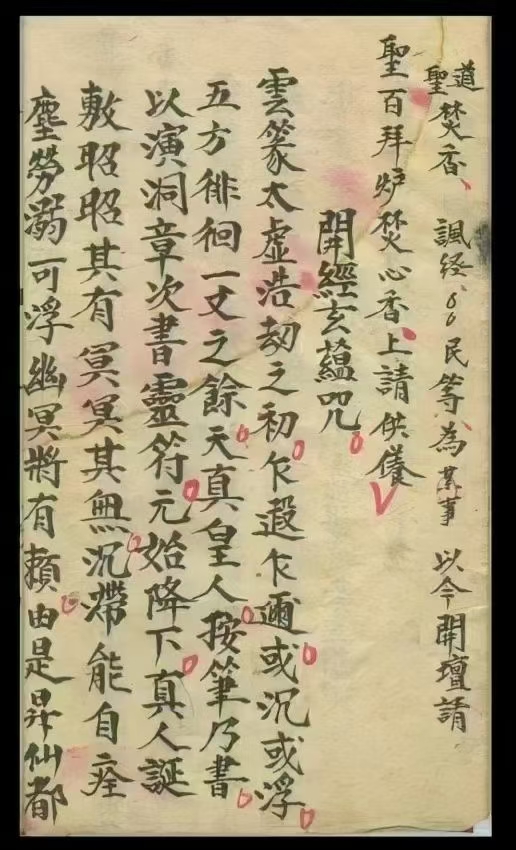 道聖焚香、諷経、〇〇民等、為某事 以今開壇請
聖百拜炉焚心香、上請供儀
開經玄蘊咒
雲篆太虛浩劫之初乍遐乍邇或沉或浮
五方徘徊一丈之餘天真皇人按筆乃書
以演洞章次書靈符元始降下真人誕
敷昭昭其有冥冥其無沉滯能自痊
塵勞溺可浮幽冥將有賴由是昇仙都